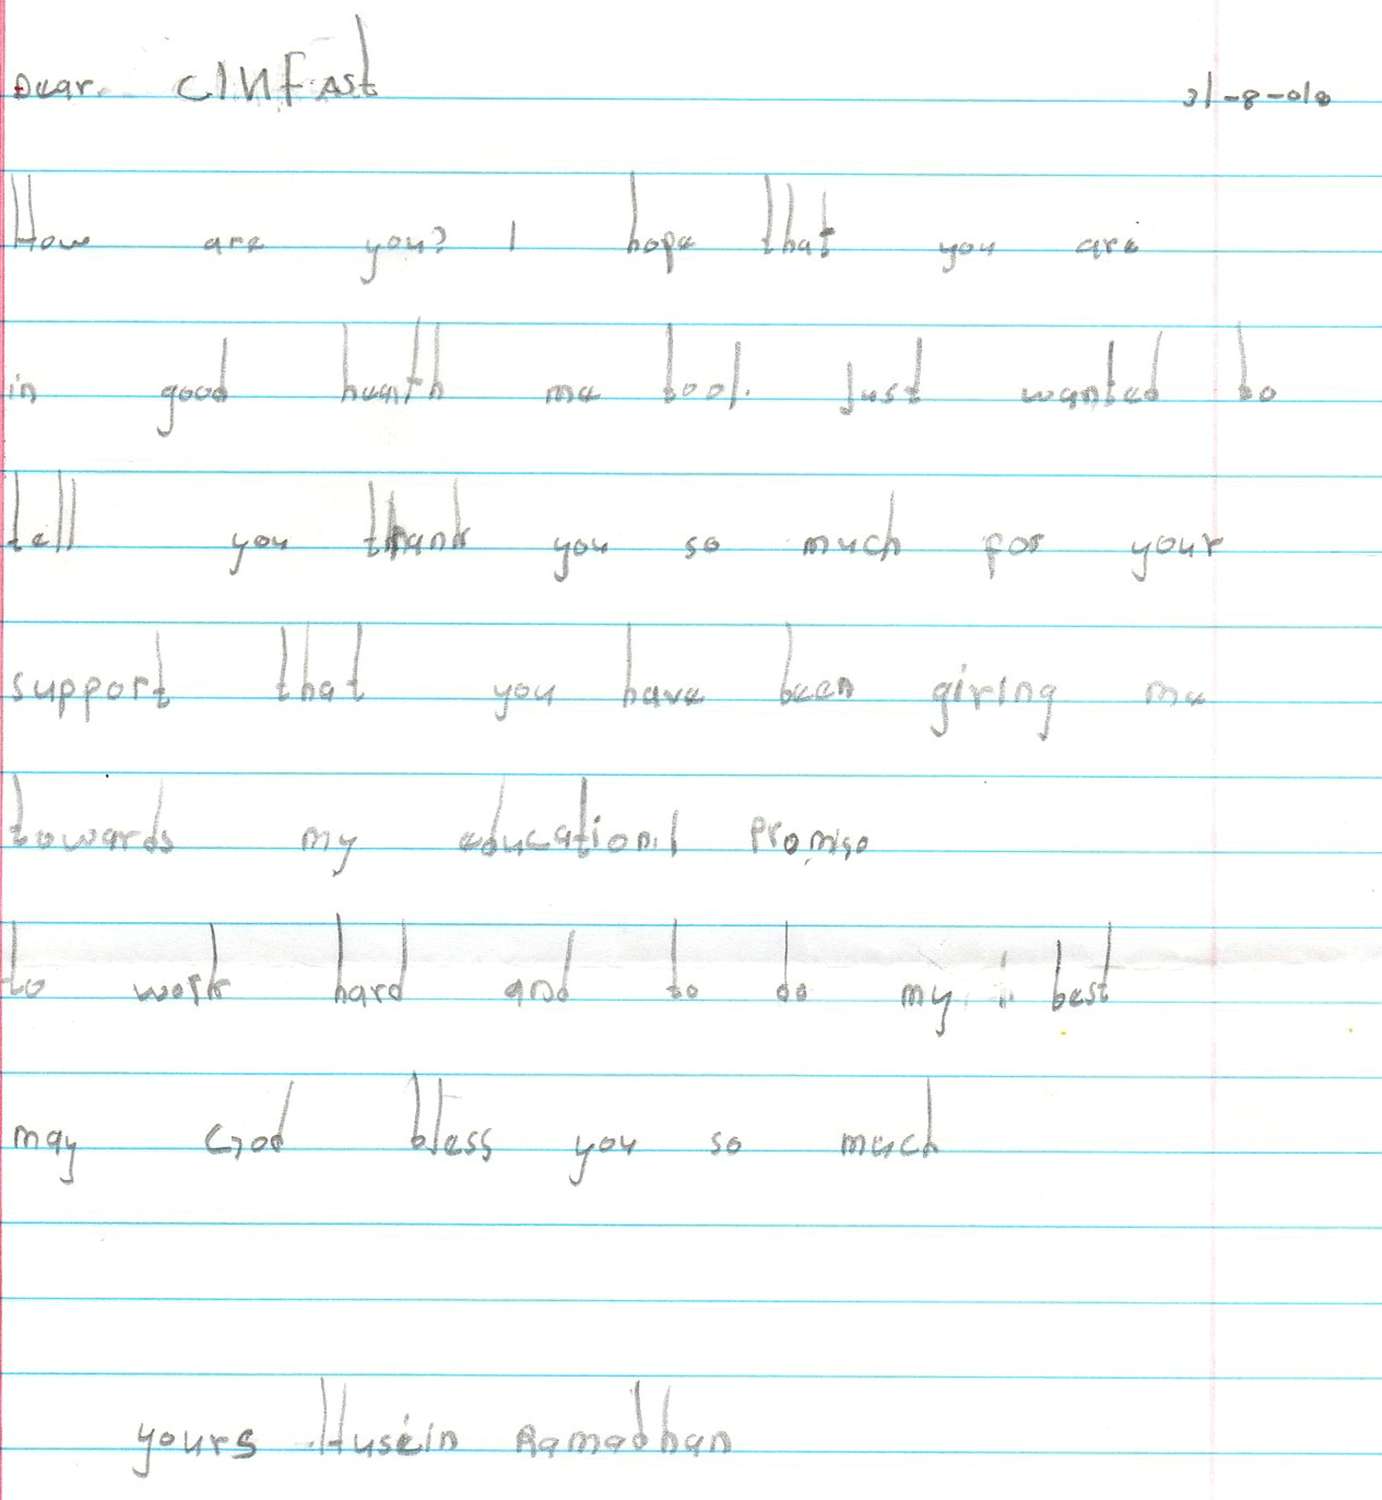 Dear. CINFAst
31-8-018
How are you? I hope that you are
in good heanth me too I. Just wanted to
tell you thank you so much for your
support that you have been giving me
towards my education. I Promise
to work hard and to do my best
may God bless you so much
yours Huséin Ramadhan